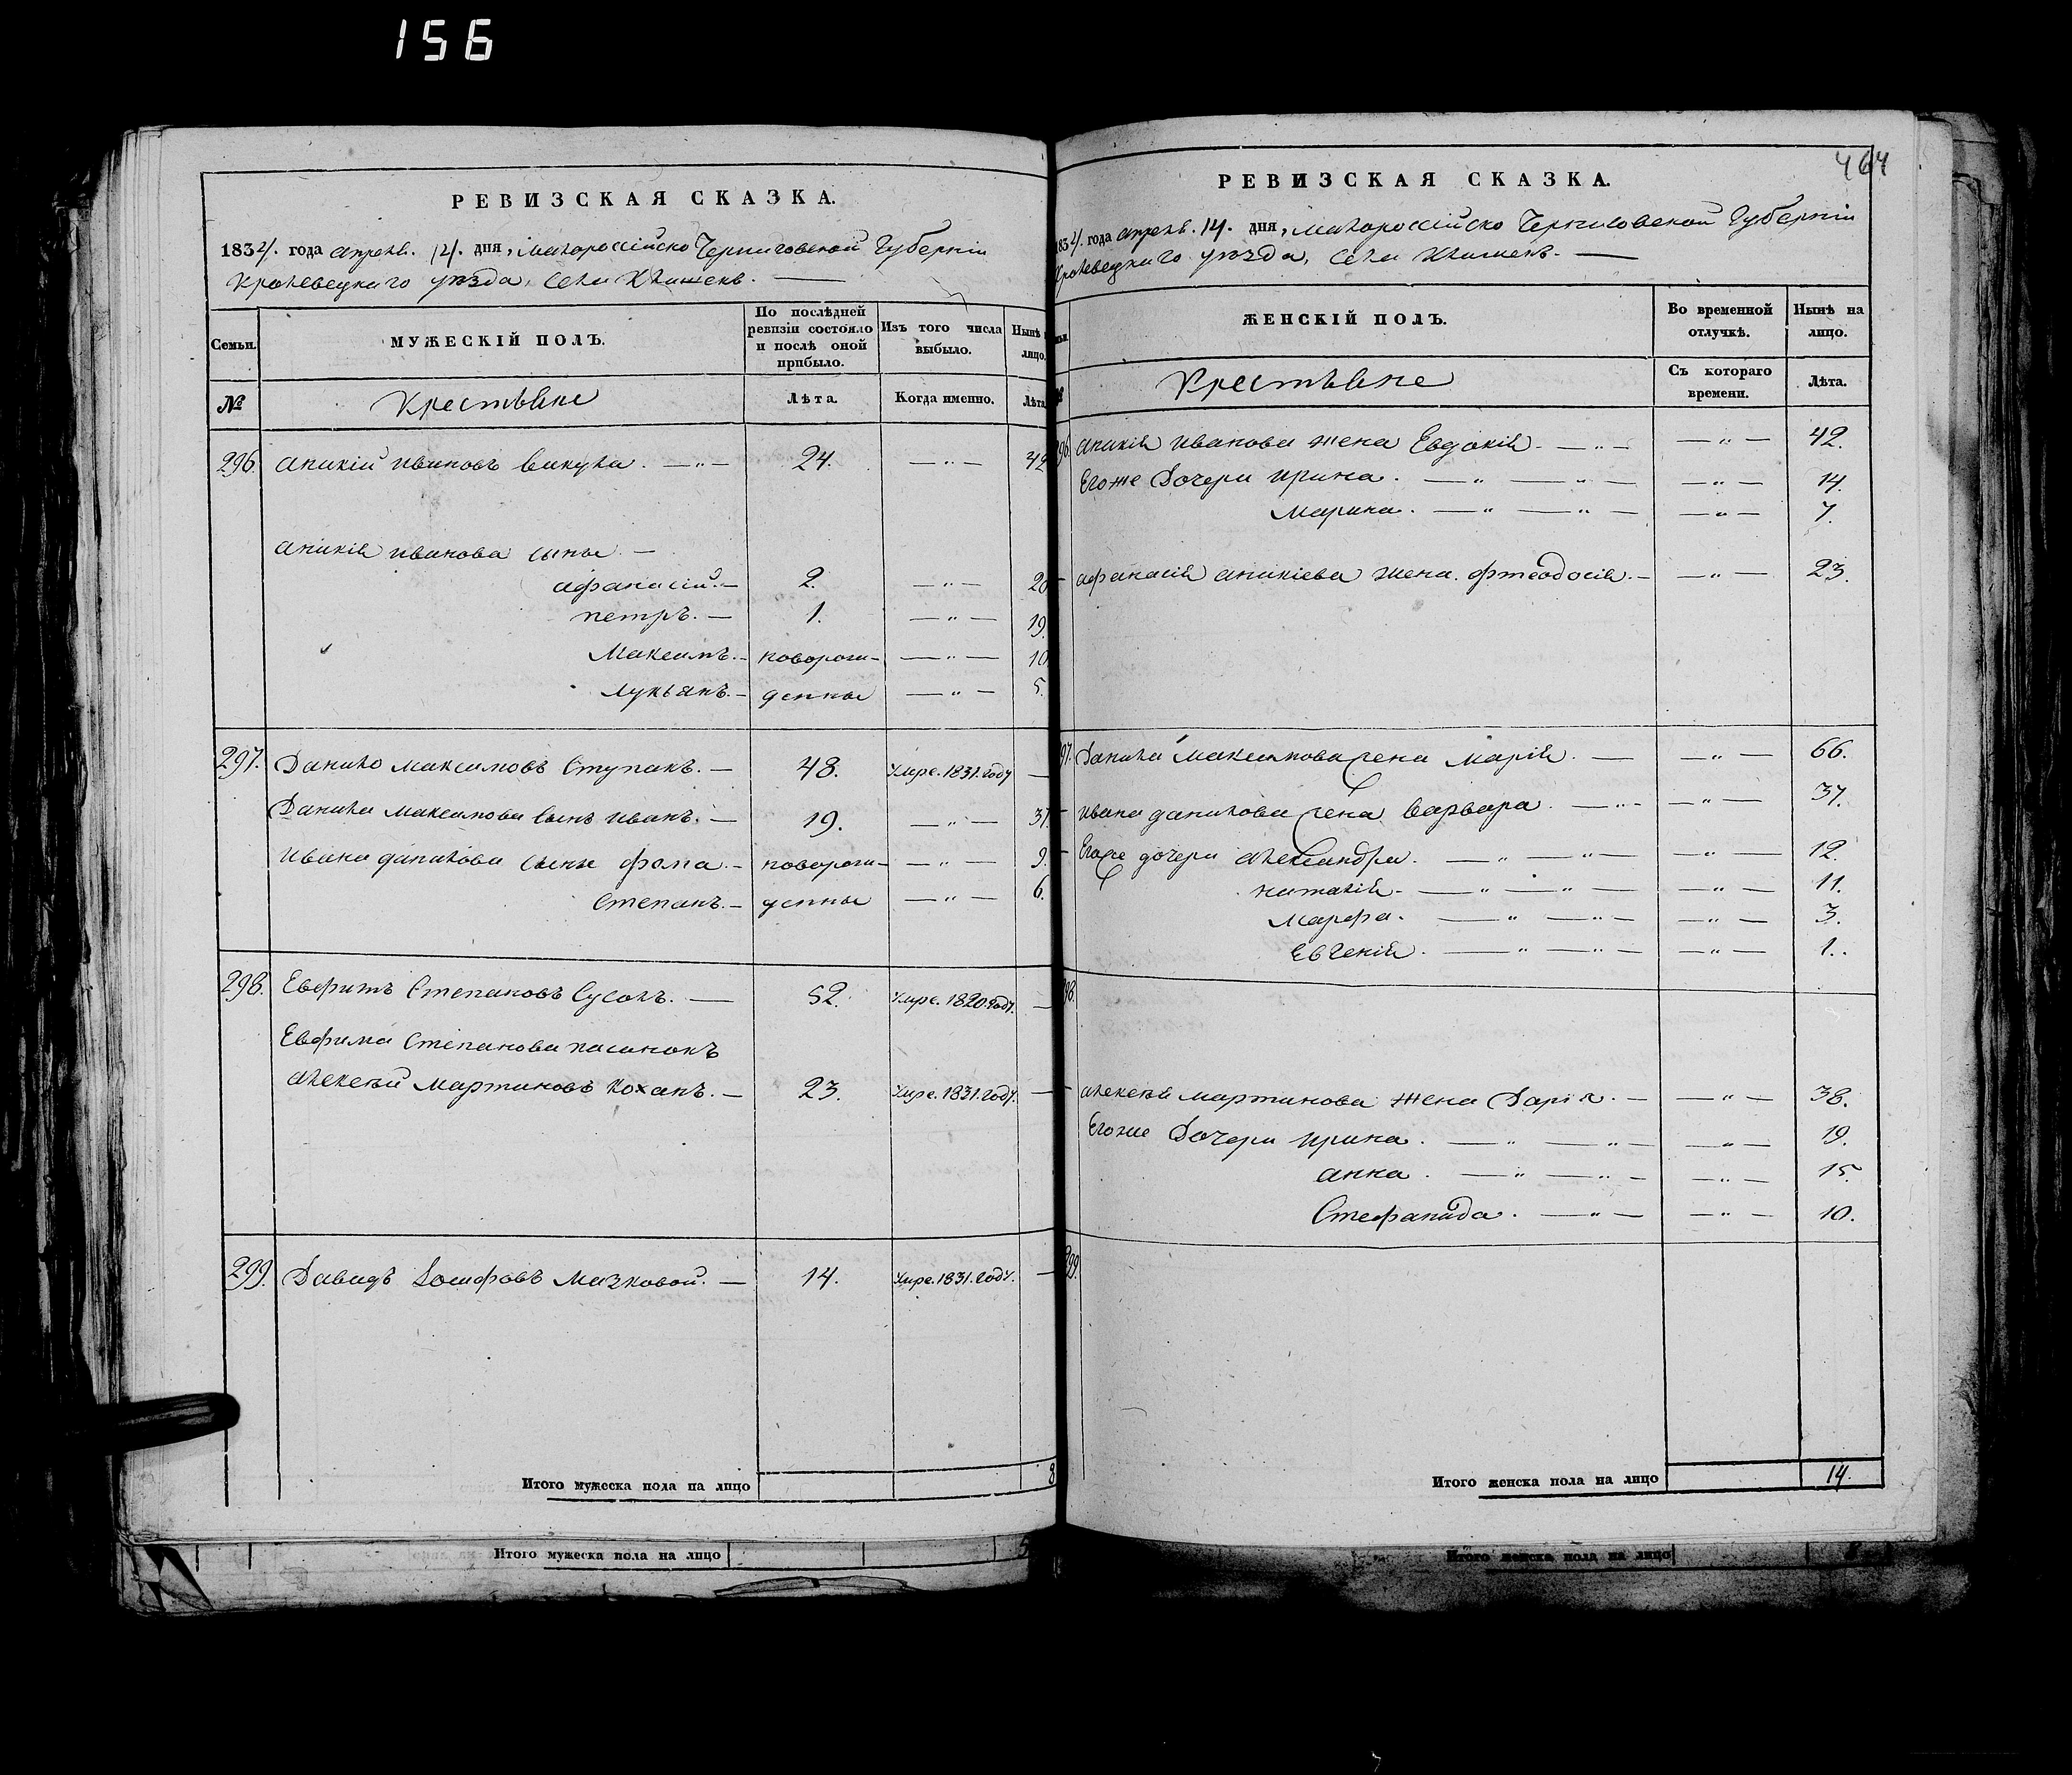 156
РЕВИЗСКАЯ СКАЗКА.
1834. года апреля. 14. дня, Малороссійско Черниговской Губерніи
Кролевецкаго уѣзда, села Клишекъ.
Семьи.
МУЖЕСКІЙ ПОЛЪ.
По послѣдней ревизіи состояло и послѣ оной прибыло.
Изъ того числа выбыло.
Нынѣ
лицо.
№
Крестьяне
Лѣта.
Когда именно.
Лѣта
296. аникій ивановъ Вакула. — " — 24. — " — 42
аникія иванова сыны —
афанасій. — 2. — " — 20
петръ. — 1. — " — 19.
Максимъ. — новорож- — " — 10
Лукьянъ. — денны — " — 5.
297. Данило Максимовъ Ступакъ. — 48. Умре. 1831. году —
Данила Максимова сынъ иванъ. — 19. — " — 37.
ивана данилова сыны фома. — новорож- — " — 9.
Степанъ. — денны — " — 6.
298. Евфимъ Степановъ Сусолъ. — 52. Умре. 1820. году. —
Евфима Степанова пасинокъ
алексѣй Мартиновъ Коханъ. — 23. Умре. 1831. году. —
299. Давидъ Іосифовъ Мазковой. — 14. Умре. 1831. году. —
Итого мужеска пола на лицо 8
Итого мужеска пола на лицо 5
464
РЕВИЗСКАЯ СКАЗКА.
1834. года апреля. 14. дня, Малороссійско Черниговской Губерніи
Кролевецкаго уѣзда, села Клишекъ. —
ЖЕНСКІЙ ПОЛЪ.
Во временной отлучкѣ.
Нынѣ на лицо.
Крестьяне
Съ котораго времени.
Лѣта.
96. аникія иванова жена Евдокія. — " — — " — 42.
Егоже Дочери ирина. — " — " — — " — 14.
Марина. — " — " — — " — 7.
афанасія аникіева жена. фтеодосія. — — " — 23.
97. Данила Максимова жена Марія. — — " — 66.
ивана данилова жена варвара. — " — — " — 37.
Егоже дочери александра. — " — " — — " — 12.
наталія. — " — " — — " — 11.
Марфа. — " — " — — " — 3.
Евгенія. — " — " — — " — 1.
98.
алексѣя мартинова жена Дарія. — — " — 38.
Егоже Дочери ирина. — " — " — — " — 19.
анна. — " — " — — " — 15.
Стефанида. — " — — " — 10.
299.
Итого женска пола на лицо 14.
Итого женска пола на лицо